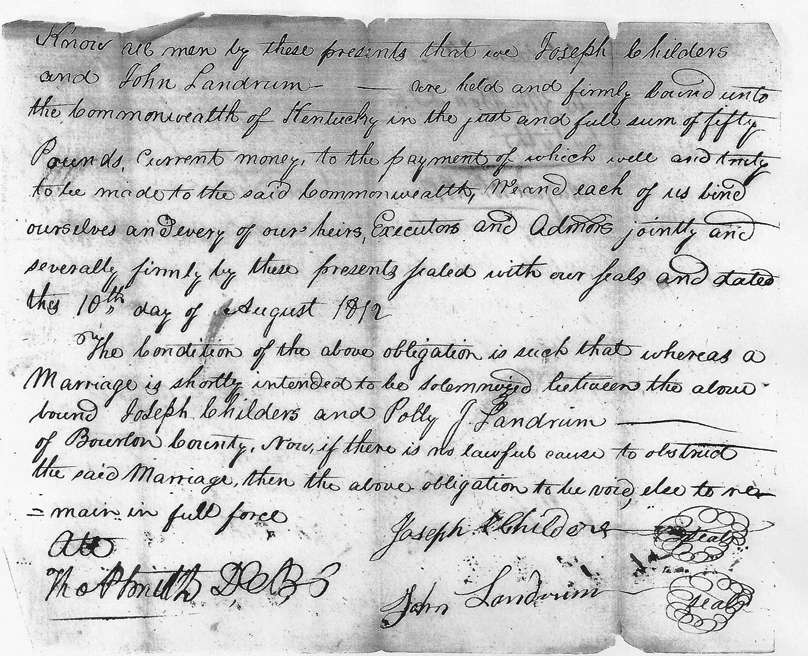 Know all men by these presents that we Joseph Childers
and John Landrum — are held and firmly bound unto
the Commonwealth of Kentucky in the just and full sum of fifty
Pounds, Current money, to the payment of which well and truly
to be made to the said Commonwealth, We and each of us bind
ourselves and every of our heirs, Executors and Admors jointly and
severally firmly by these presents sealed with our seals and dated
this 10th day of August 1812
The Condition of the above obligation is such that whereas a
Marriage is shortly intended to be solemnized between the above
bound Joseph Childers and Polly J Landrum —
of Bourbon County, Now, if there is no lawful cause to obstruct
the said Marriage, then the above obligation to be void, else to re-
=main in full force
Joseph Childers seal
Att
Tho P Smith D C B C
John Landrum seal